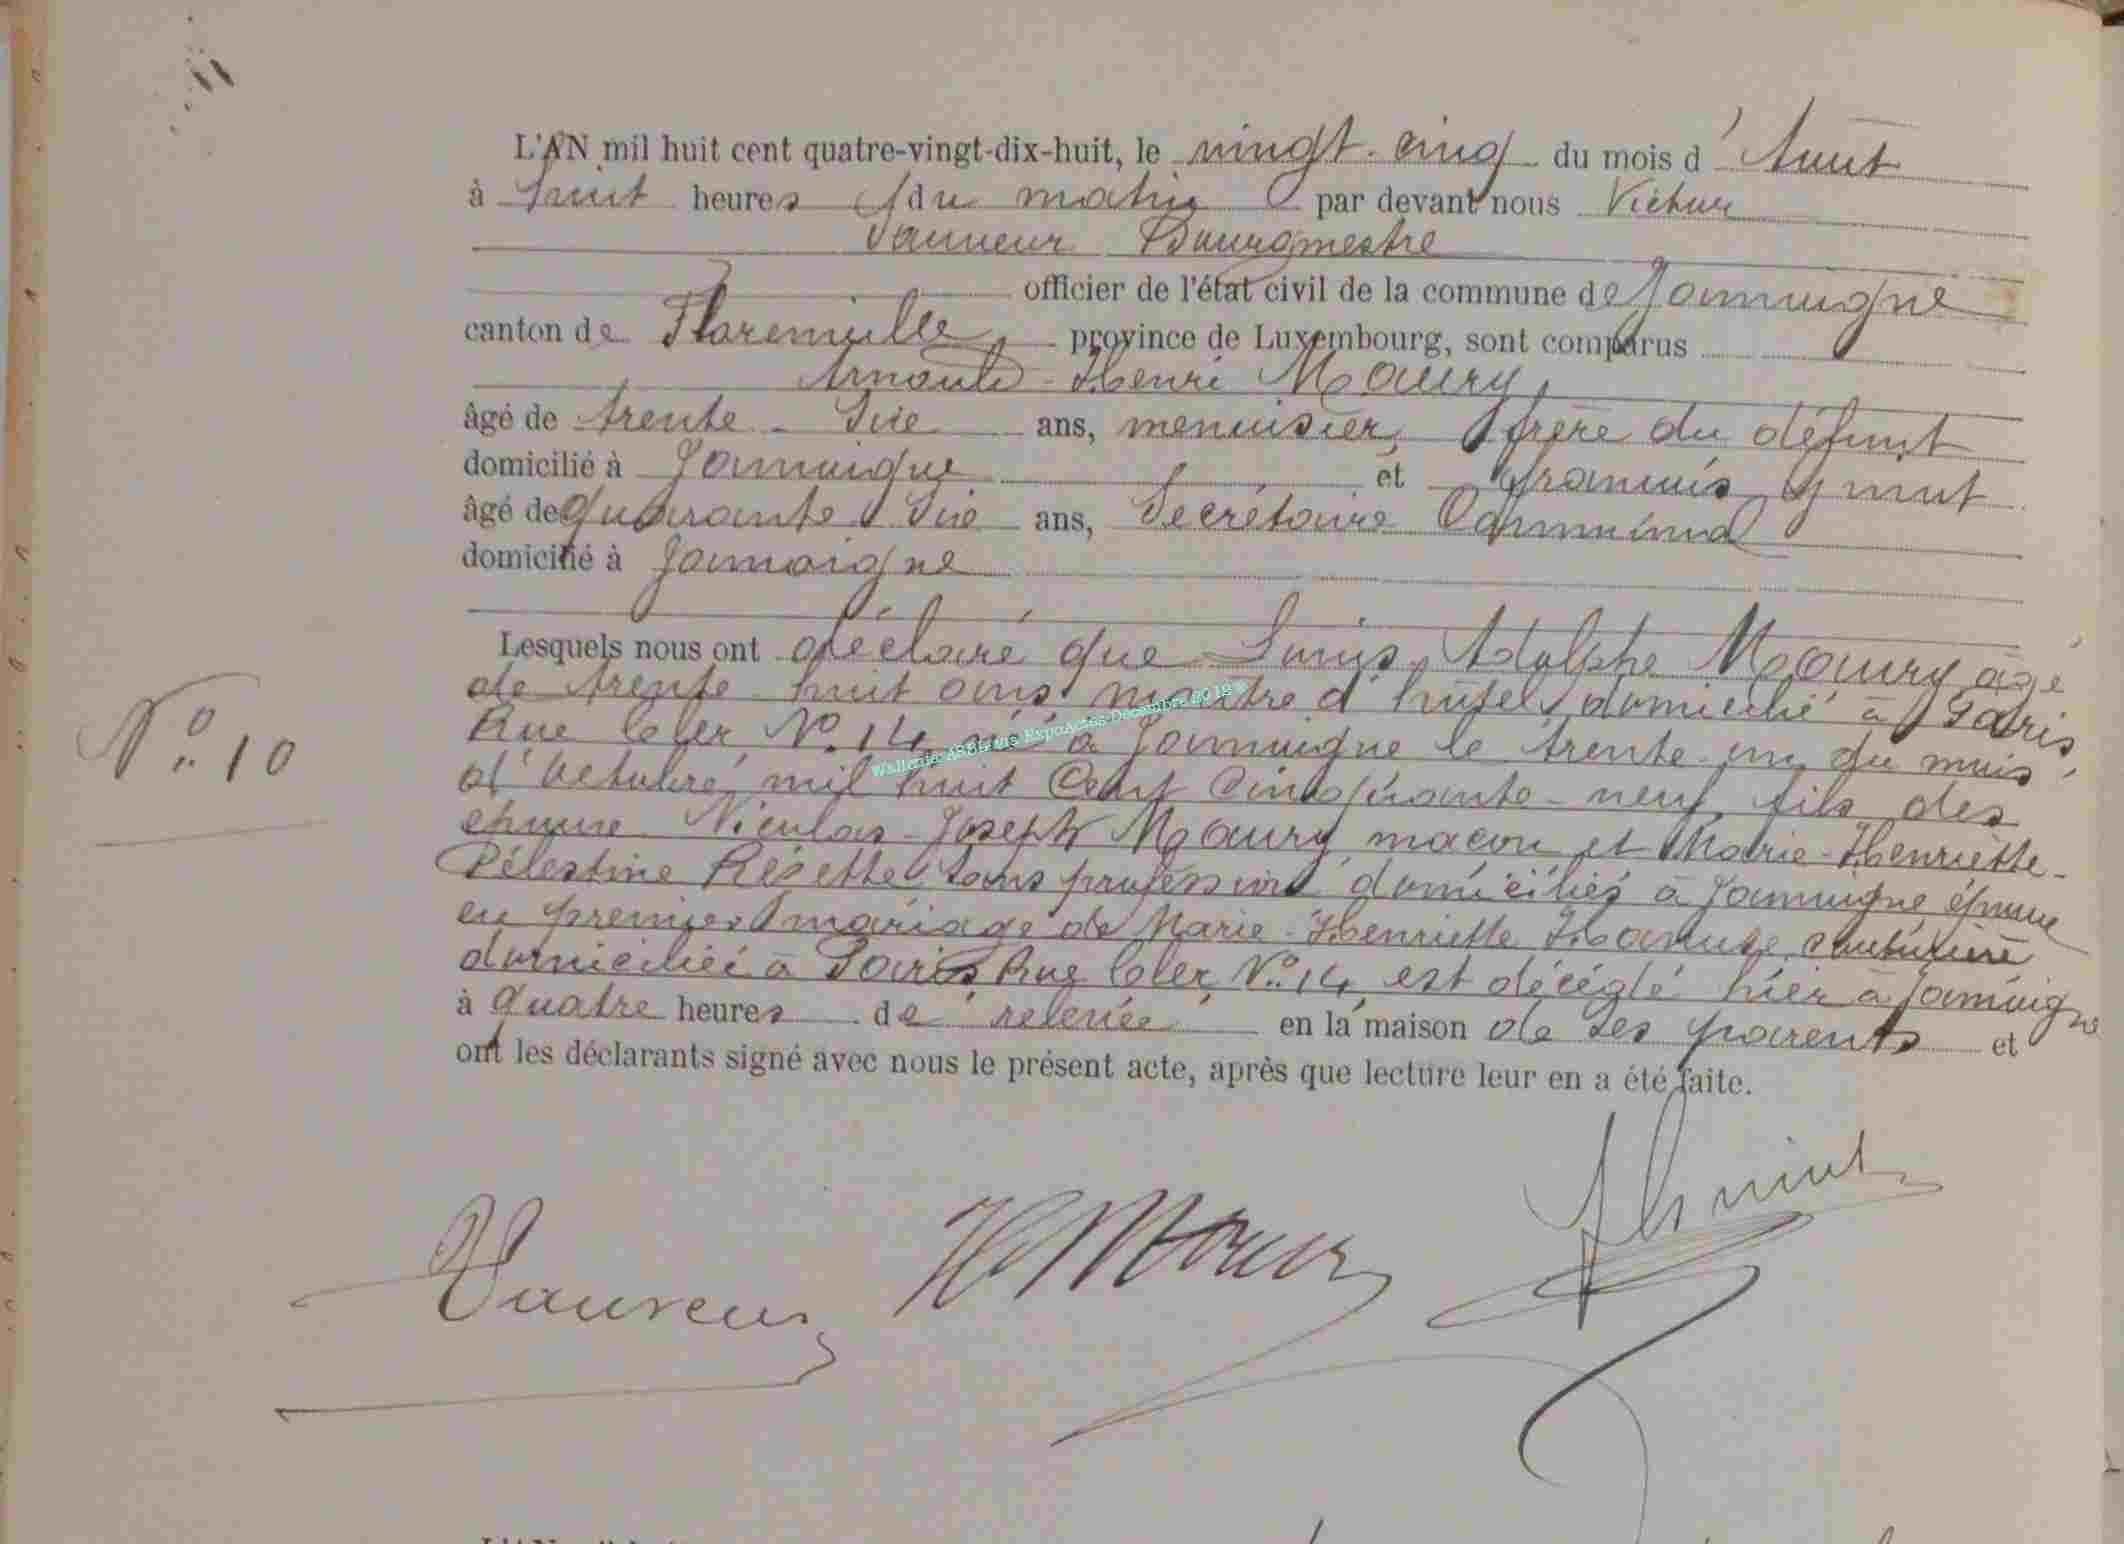 L'AN mil huit cent quatre-vingt-dix-huit, le vingt-cinq du mois d'Aout
à huit heures du matin par devant nous Victor
Vauveur Bourgmestre
officier de l'état civil de la commune de Jamoigne
canton de Florenville, province de Luxembourg, sont comparus
Arnould-Henri Maury,
âgé de trente-six ans, menuisier, frère du défunt
domicilié à Jamoigne et François
âgé de quarante six ans, Secrétaire Communal
domicilié à Jamoigne
Lesquels nous ont déclaré que Louis, Adolphe Maury âgé
de trente-huit ans maitre d'hôtel, domicilié à Paris,
Rue Cler N° 14 né à Jamoigne le trente-un du mois
N° 10
d'Octobre mil huit Cent Cinquante-neuf, fils des
époux Nicolas-Joseph Maury maçon et Marie-Henriette-
Célestine Résette sans profession domiciliés à Jamoigne, époux
en premier mariage de Marie-Henriette couturière
domiciliée à Paris Rue Cler N° 14, est décédé hier à Jamoigne
à quatre heures de relevée en la maison de ses parents et
ont les déclarants signé avec nous le présent acte, après que lecture leur en a été faite.
Vauveur H Maury
Wallonie ASBL ExpoActes Décembre 2012